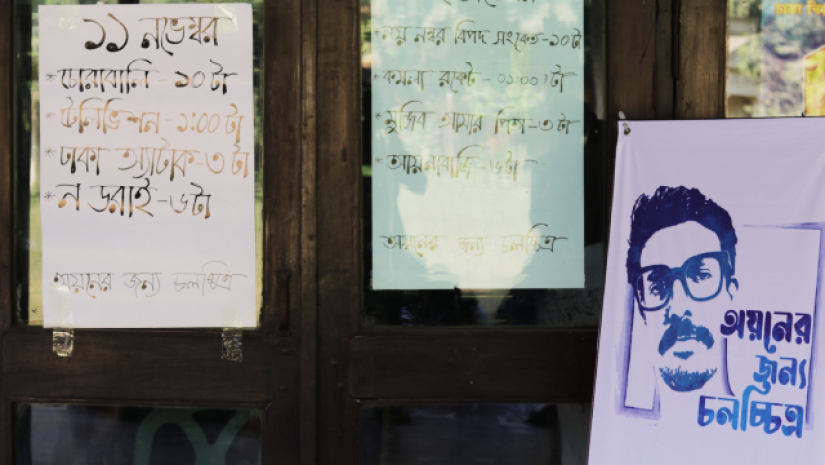 ১১ নভেম্বর
* চোরাবালি - ১০ টা
* টেলিভিশন - ১:০০ টা
* ঢাকা অ্যাটাক - ৩ টা
* ন ডরাই - ৬ টা
অয়নের জন্য চলচ্চিত্র
* নয় নম্বর বিপদ সংকেত - ১০ টা
* কমলা রকেট - ০১:০০ টা
* মুজিব আমার পিতা - ৩ টা
* আয়নাবাজি - ৬ টা
অয়নের জন্য চলচ্চিত্র
অয়নের
জন্য
চলচ্চিত্র